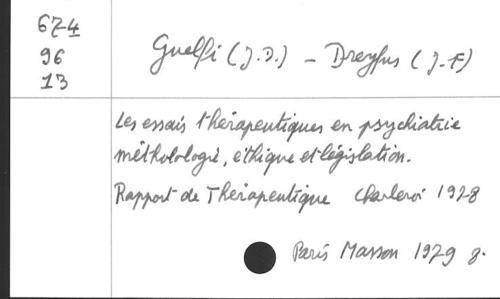 674
96
13
Guelfi (J.D.) - Dreyfus (J-F)
Les essais thérapeutiques en psychiatrie
méthologie, éthique et législation.
Rapport de Thérapeutique Charleroi 1978
Paris Masson 1979 8.